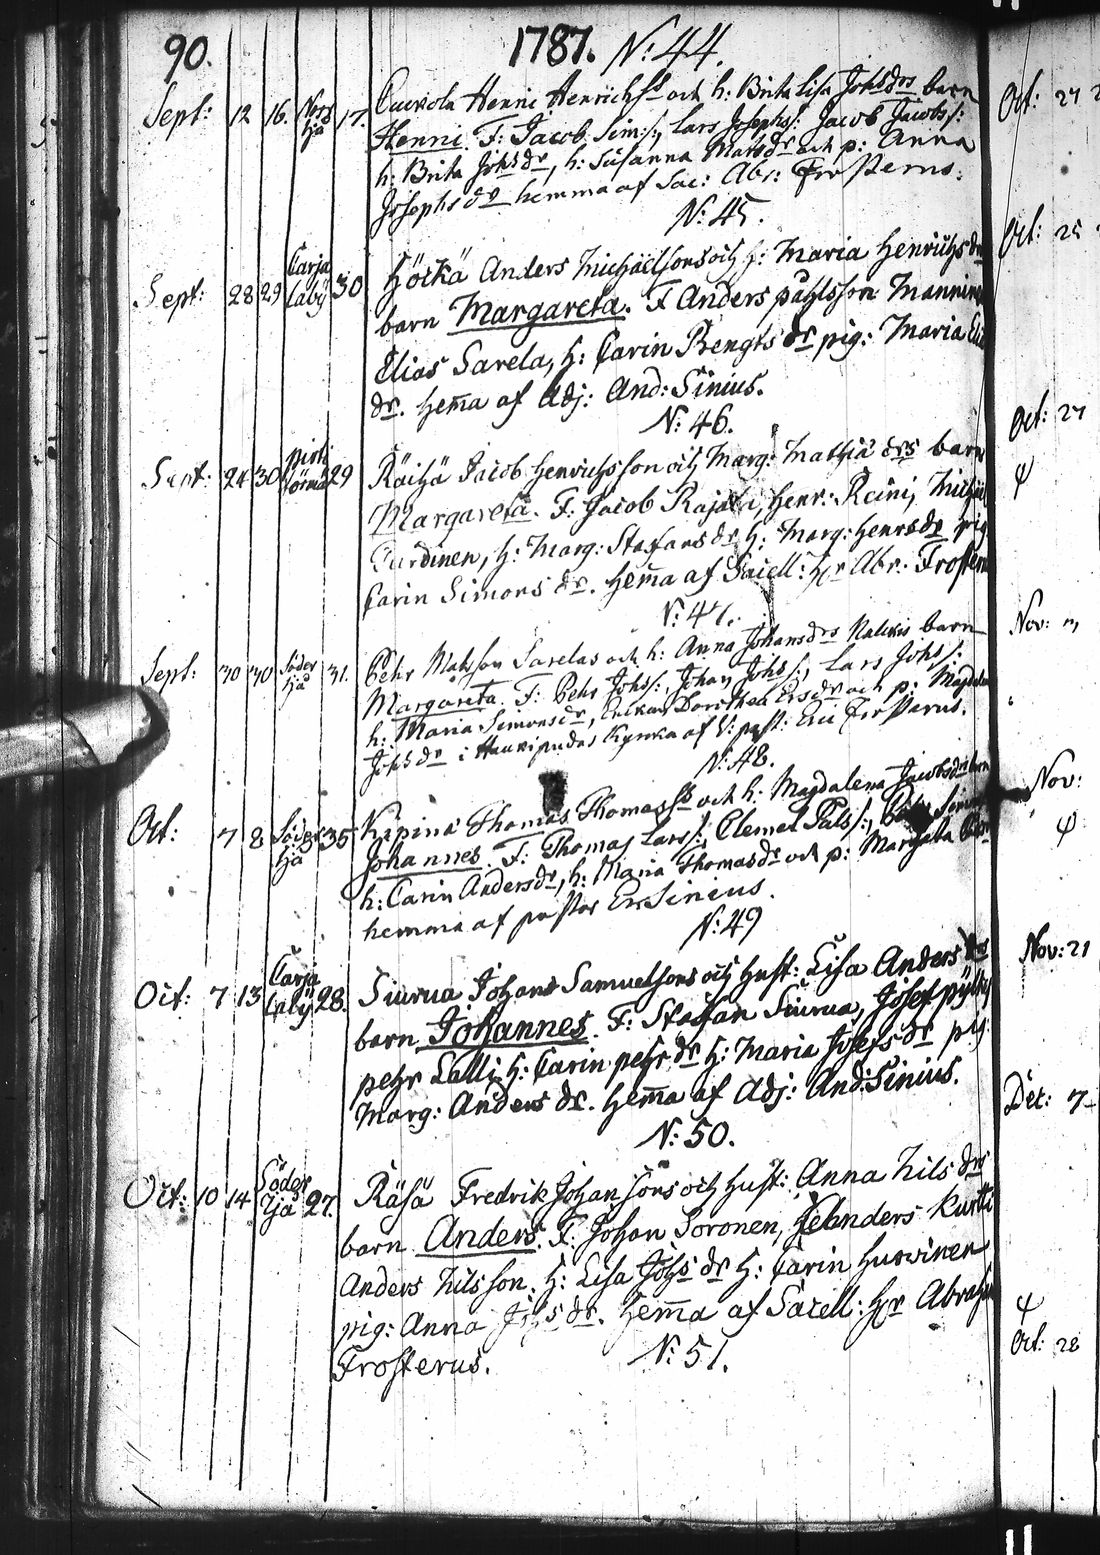 90. 1787. N: 44.
Sept: 12 16. Norr Ijå 17. Henni Henrichss och h: Brita Lisa Johsdrs barn
Henni. F: Jacob Sim:s:, Lars Josephs: Jacob Jacobs:
h: Brita Johsdr, h: Susanna Matsdr och p: Anna
Josephsdr hemma af Sac: Abr: Frosterus.
N: 45.
Sept: 28 29 Carja laby 30 Höckä Anders Michaelsons och h: Maria Henrichsdrs
barn Margareta. F Anders påhlsson Manninen
Elias Sarela, h: Carin Bengts dr pig: Maria
dr. hem̄a af Adj: And: Sinius.
N: 46.
Sept: 24 30 29 Räihä Jacob Henrichsson och Marg: Mathiæ drs barn
Margareta. F: Jacob Rajala, Henr: Reini, Michael
h: Marg: Stafans dr h: Marg: Henrsdr pig
Carin Simons dr. hem̄a af Sacell: Hr Abr: Frosterus
N: 47.
Sept: 30 30 Söder Ijå 31. Pehr Matsson Sarelas och h: Anna Johansdrs barn
Margareta. F: Pehr Johs:, Johan Johs:, Lars Johs:
h: Maria Simonsdr, Enkan Dorothea Ersdr och p: Magdalena
Johsdr i Haukipudas Kyrka af V: past: Eric Frosterus.
N: 48.
Oct: 7 8 Söder Ijå 35 Kipinä Thomas Thomass och h: Magdalena Jacobsdrs barn
Johannes. F: Thomas Lars:, Clemet Påls:,
h: Carin Andersdr, h: Maria Thomasdr och p: Margeta
hemma af pastor Er Sinius.
N: 49
Oct: 7 13 Carja laby 28. Siurua Johans Samuelsons och hust: Lisa Anders drs
barn Johannes. F: Staffan Siurua, Josef
pehr Lalli h: Carin pehr dr h: Maria Josefs dr pig:
Marg: Anders dr. hem̄a af Adj: And: Sinius.
N: 50.
Oct: 10 14 Söder Ijå 27. Räsä Fredrik Johansons och hust: Anna Nils drs
barn Anders. F: Johan Soronen, Anders Kurtti
Anders Nilsson. h: Lisa Johs dr h: Carin Hurvinen
pig: Anna Johs dr. hem̄a af Sacell: Hr Abraham
Frosterus.
N: 51.
Oct: 27
Oct: 25
Oct: 27
Nov:
Nov:
Nov: 21
Det: 7
Oct: 28